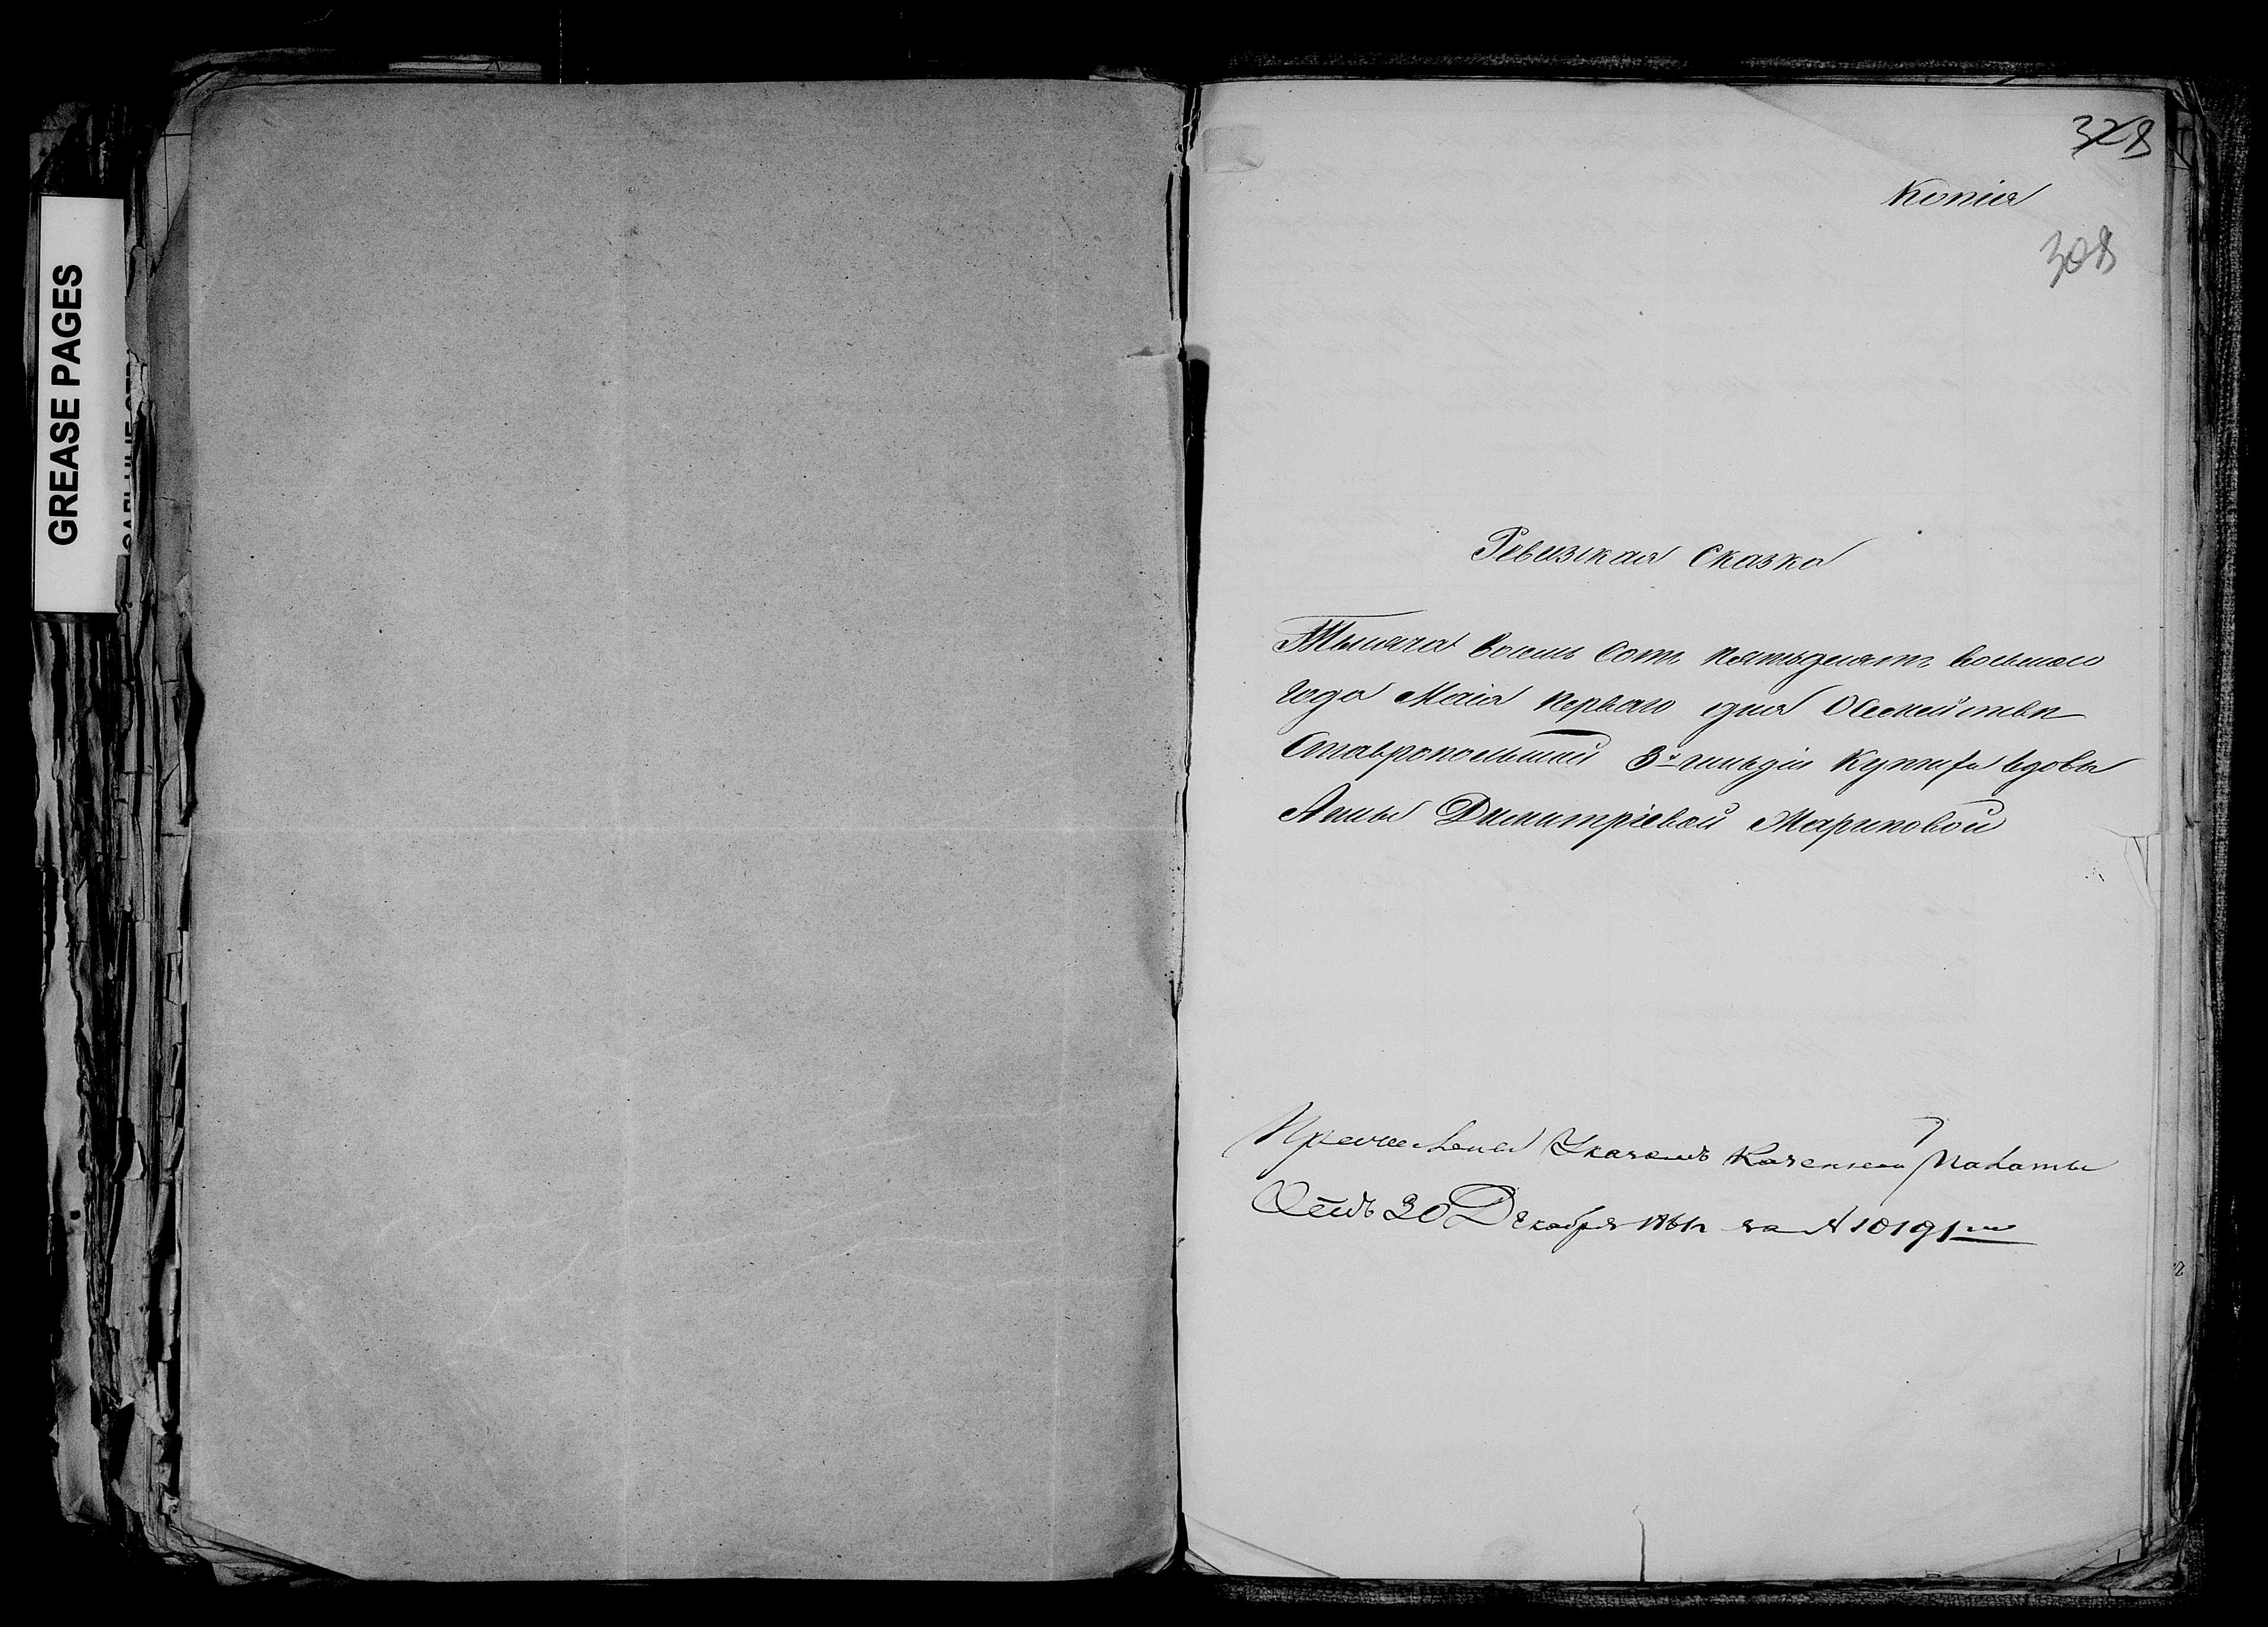 GREASE PAGES
328
Копія
308
Ревизская Сказка
Тысяча восемь сотъ пятьдесятъ восьмаго
года Маія перваго дня о семействѣ
Ставропольской 3й гильдіи купчихи вдовы
Анны Димитріевой Мариновой
Причислена Указомъ Казенной Палаты
отъ 30 Декабря 1861г за № 10191мъ